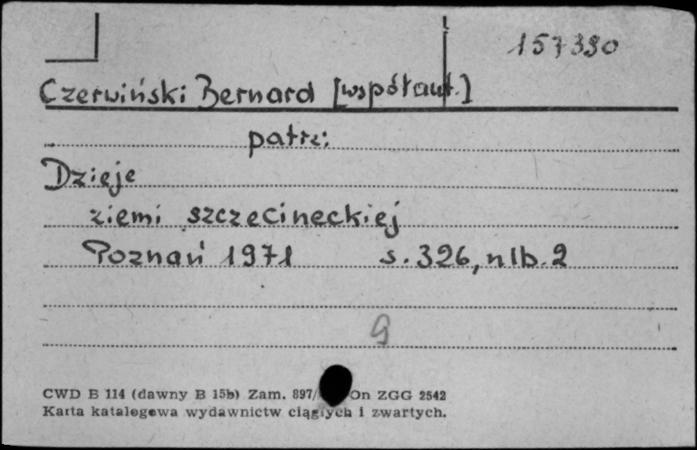 157390
Czerwiński Bernard [współaut.]
patrz:
Dzieje
ziemi szczecineckiej
Poznań 1971 s. 326, nlb. 2
9
CWD B 114 (dawny B 15b) Zam. 897/ On ZGG 2542
Karta katalogowa wydawnictw ciągłych i zwartych.